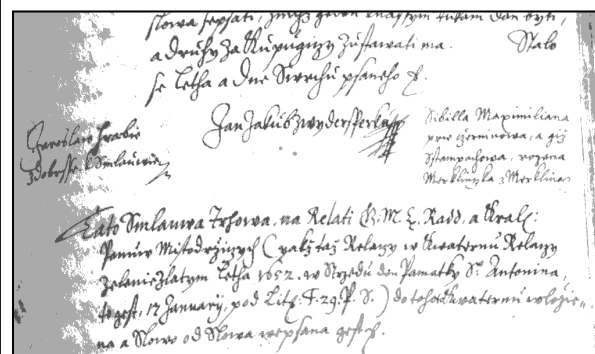 slowa sepsati, z nichž geden knassym rukam dan byti,
a druhy za Kupugiczy zůstawati ma. Stalo
se Letha a Dne Swrchu psaneho
Jaroslaw hrabie
Jan Jakub z wydersperku
Sibilla Maximiliana
prve czerninowa, a giž
Sstampachowa, rozena
Merkliczka z Merklina
zdobrsse Smlauwce
Tato Smlauwa Trhowa, na Relati G. M. C. Radd. a Kral:
Panuw Mistodržiczych (yakž taž Relaczy w Kwaternu Relaczy
Zeleniezlatym Letha 1652. w Strzedu den Pamatky S. Antonina,
to gest, 17 January, pod Lit: F. 29. P. S.) do tohoto kwaternu wložie-
na a Slowo od Slowa wepsana gest